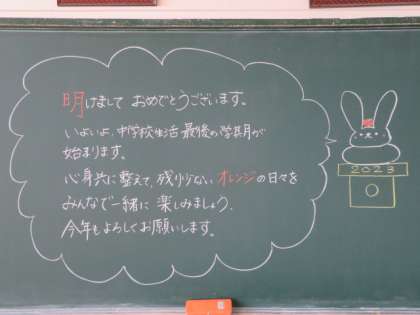 明けまして おめでとうございます。
いよいよ、中学校生活 最後の学期が
始まります。
心身共に整えて、残り少ない オレンジの日々を
みんなで一緒に 楽しみましょう。
今年もよろしくお願いします。
2023